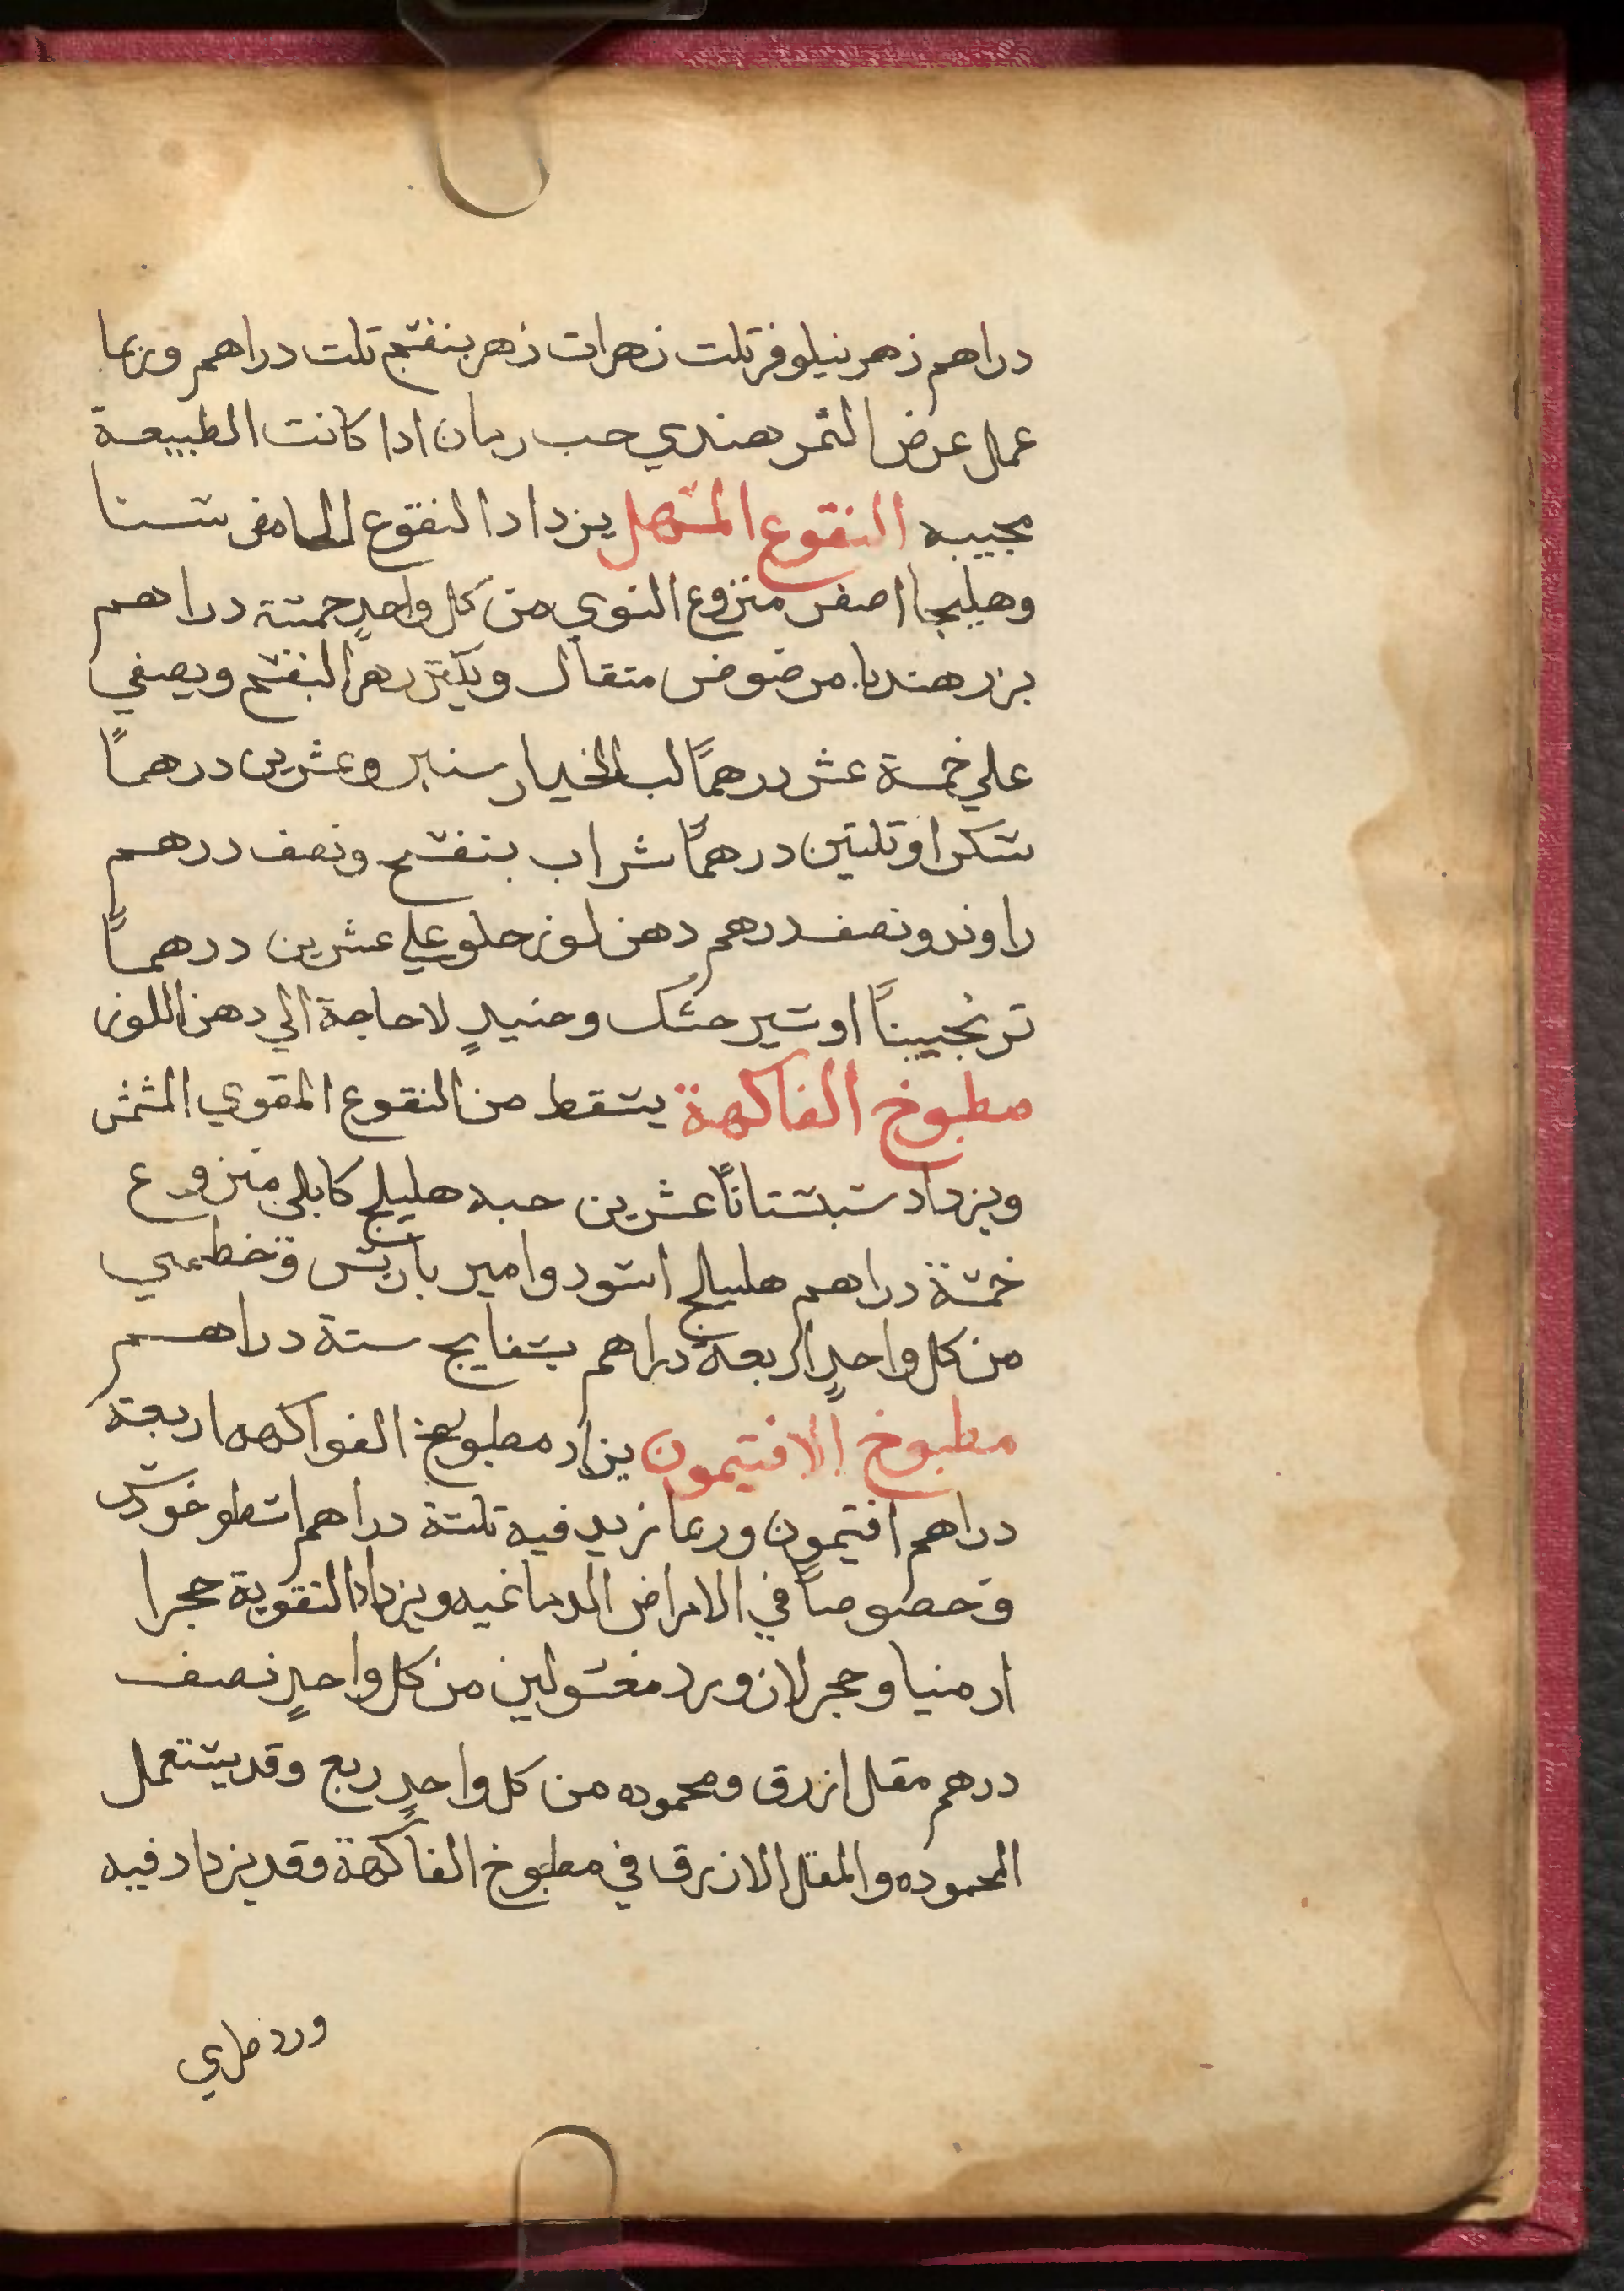 دراهم زهر نيلوفر تلت زهرات زهر بنفسج تلت دراهم وربما
عمل عوض التمر هندي حب رمان ادا كانت الطبيعة
مجيبه النقوع المسهل يزداد النقوع الحامض سنا
وهليجا اصفر منزوع النوي من كل واحدٍ خمسة دراهم
بزر هندبا مرضوض متقال ويكتر زهر البنفسج ويصفي
علي خمسة عشر درهمًا لب الخيار سنبر وعشرين درهمًا
سكرا وتلتين درهمًا شراب بنفسج ونصف درهم
راوند ونصف درهم دهن لوز حلو علي عشرين درهمًا
ترنجبينًا او شير خشك وحنيدٍ لا حاجة الي دهن اللوز
مطبوخ الفاكهة يسقط من النقوع المقوي المشمش
ويزداد سبستانًا عشرين حبه هليلج كابلي منزوع
خمسة دراهم هليلج اسود وامير باريس وخطمي
من كل واحدٍ اربعة دراهم بسفايج ستة دراهم
مطبوخ الافتيمون يزاد مطبوخ الفواكهه اربعة
دراهم افتيمون وربما زيد فيه تلتة دراهم اسطوخودس
وخصوصاً في الامراض الدماغيه ويزداد التقوية حجرا
ارمنيا وحجر لازورد مغسولين من كل واحدٍ نصف
درهم مقل ازرق ومحموده من كل واحدٍ ربع وقد يستعمل
المحموده والمقل الازرق في مطبوخ الفاكهة وقد يزداد فيه
ورد طري